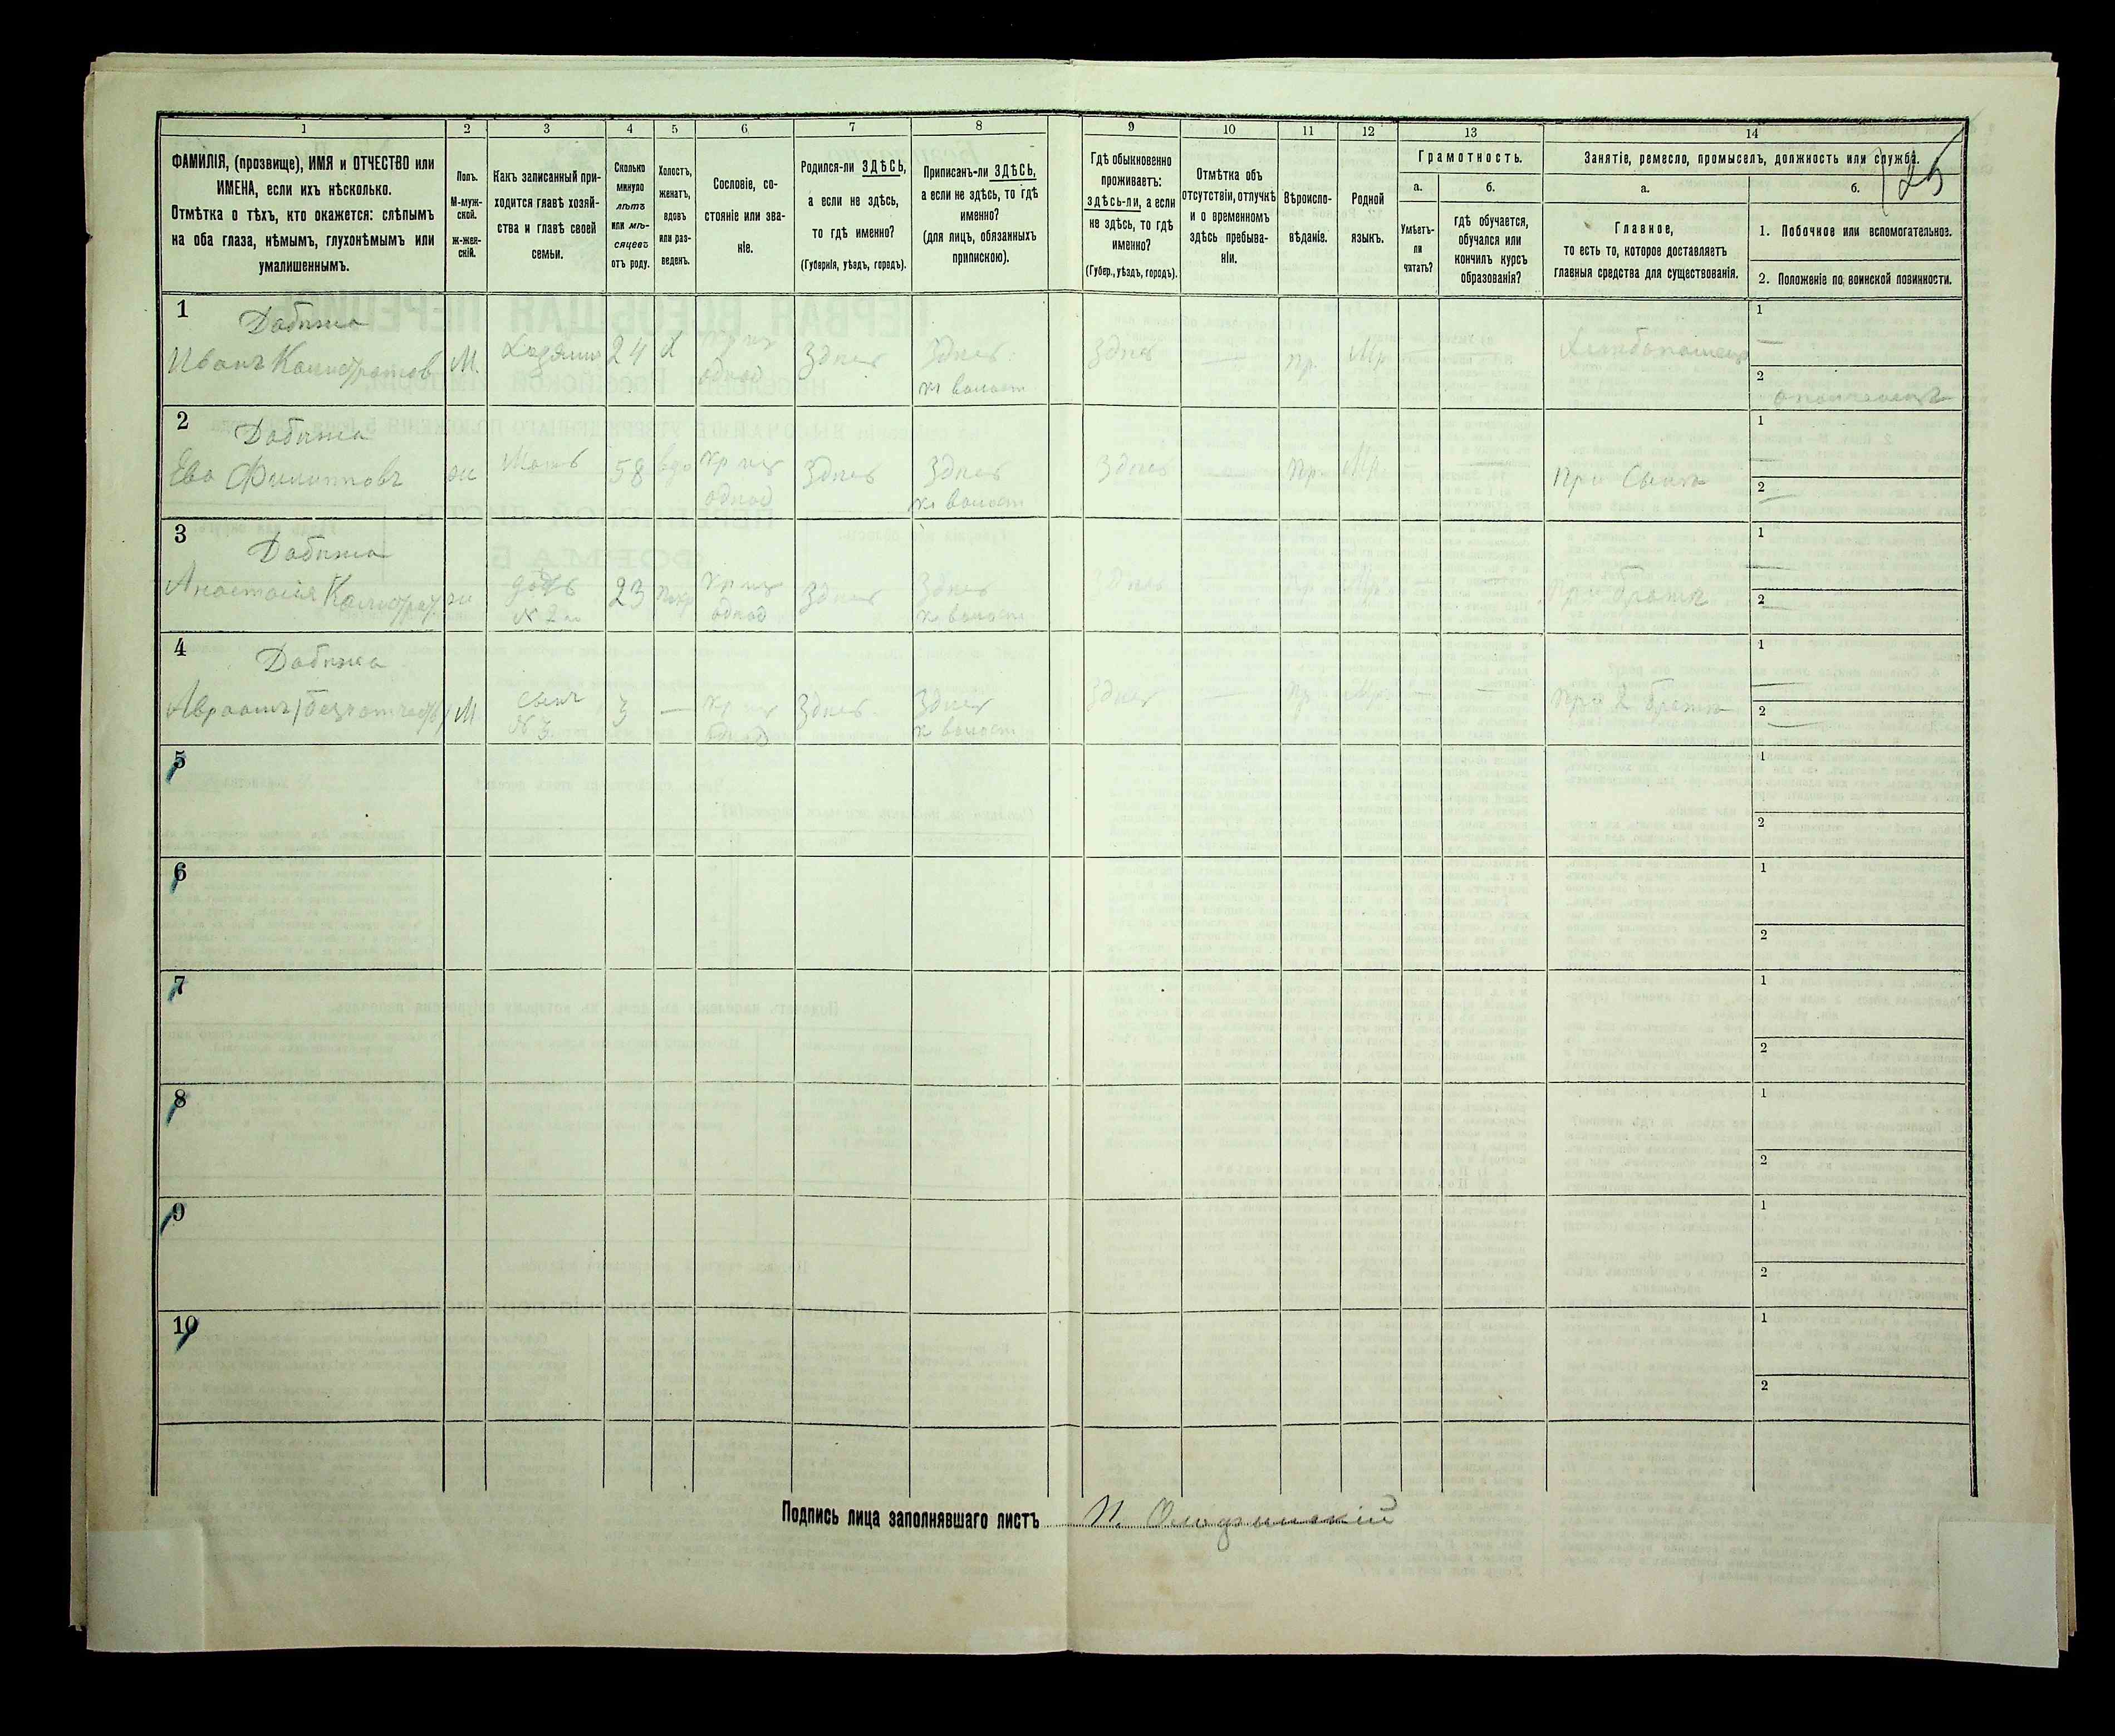 1 2 3 4 5 6 7 8 9 10 11 12 13 14
25
ФАМИЛІЯ, (прозвище), ИМЯ и ОТЧЕСТВО или
ИМЕНА, если ихъ нѣсколько.
Отмѣтка о тѣхъ, кто окажется: слѣпымъ
на оба глаза, нѣмымъ, глухонѣмымъ или
умалишеннымъ.
Полъ.
М-муж-
ской.
ж-жен-
скій.
Какъ записанный при-
ходится главѣ хозяй-
ства и главѣ своей
семьи.
Сколько
минуло
лѣтъ
или мѣ-
сяцевъ
отъ роду.
Холостъ,
женатъ,
вдовъ
или раз-
веденъ.
Сословіе, со-
стояніе или зва-
ніе.
Родился-ли ЗДѢСЬ,
а если не здѣсь,
то гдѣ именно?
(Губернія, уѣздъ, городъ).
Приписанъ-ли ЗДѢСЬ,
а если не здѣсь, то гдѣ
именно?
(для лицъ, обязанныхъ
припискою).
Гдѣ обыкновенно
проживаетъ:
здѣсь-ли, а если
не здѣсь, то гдѣ
именно?
(Губер., уѣздъ, городъ).
Отмѣтка объ
отсутствіи, отлучкѣ
и о временномъ
здѣсь пребыва-
ніи.
Вѣроиспо-
вѣданіе.
Родной
языкъ.
Грамотность.
а.
Умѣетъ-
ли
читать?
б.
гдѣ обучается,
обучался или
кончилъ курсъ
образованія?
Занятіе, ремесло, промыселъ, должность или служба.
а.
Главное,
то есть то, которое доставляетъ
главныя средства для существованія.
б.
1. Побочное или вспомогательное.
2. Положеніе по воинской повинности.
1
Дабижа
Иванъ Калистратов М. Хозяин 24 Х кр из Здѣсь Здѣсь Здѣсь — пр. Мр. Хлебопашец
однод
к волост
1 —
2 ополченецъ
2
Дабижа
Ева Филипповъ ж Мать 58 вдо кр из Здѣсь Здѣсь Здѣсь — пр. Мр. — — При Сынѣ
однод к волост
1 —
2 —
3
Дабижа
Анастасія Калистрат. ж дочь 23 кр из Здѣсь Здѣсь Здѣсь — пр. Мр. — При братѣ
№ 2 однод к волост
1 —
2 —
4
Дабижа
Авраамъ (безъ отчеств) М сынъ 3 — кр из Здѣсь Здѣсь Здѣсь — пр Мр. — — При братѣ
№ 3 однод к волост
1 —
2 —
5
1
2
6
1
2
7
1
2
8
1
2
9
1
2
10
1
2
Подпись лица заполнявшаго листъ